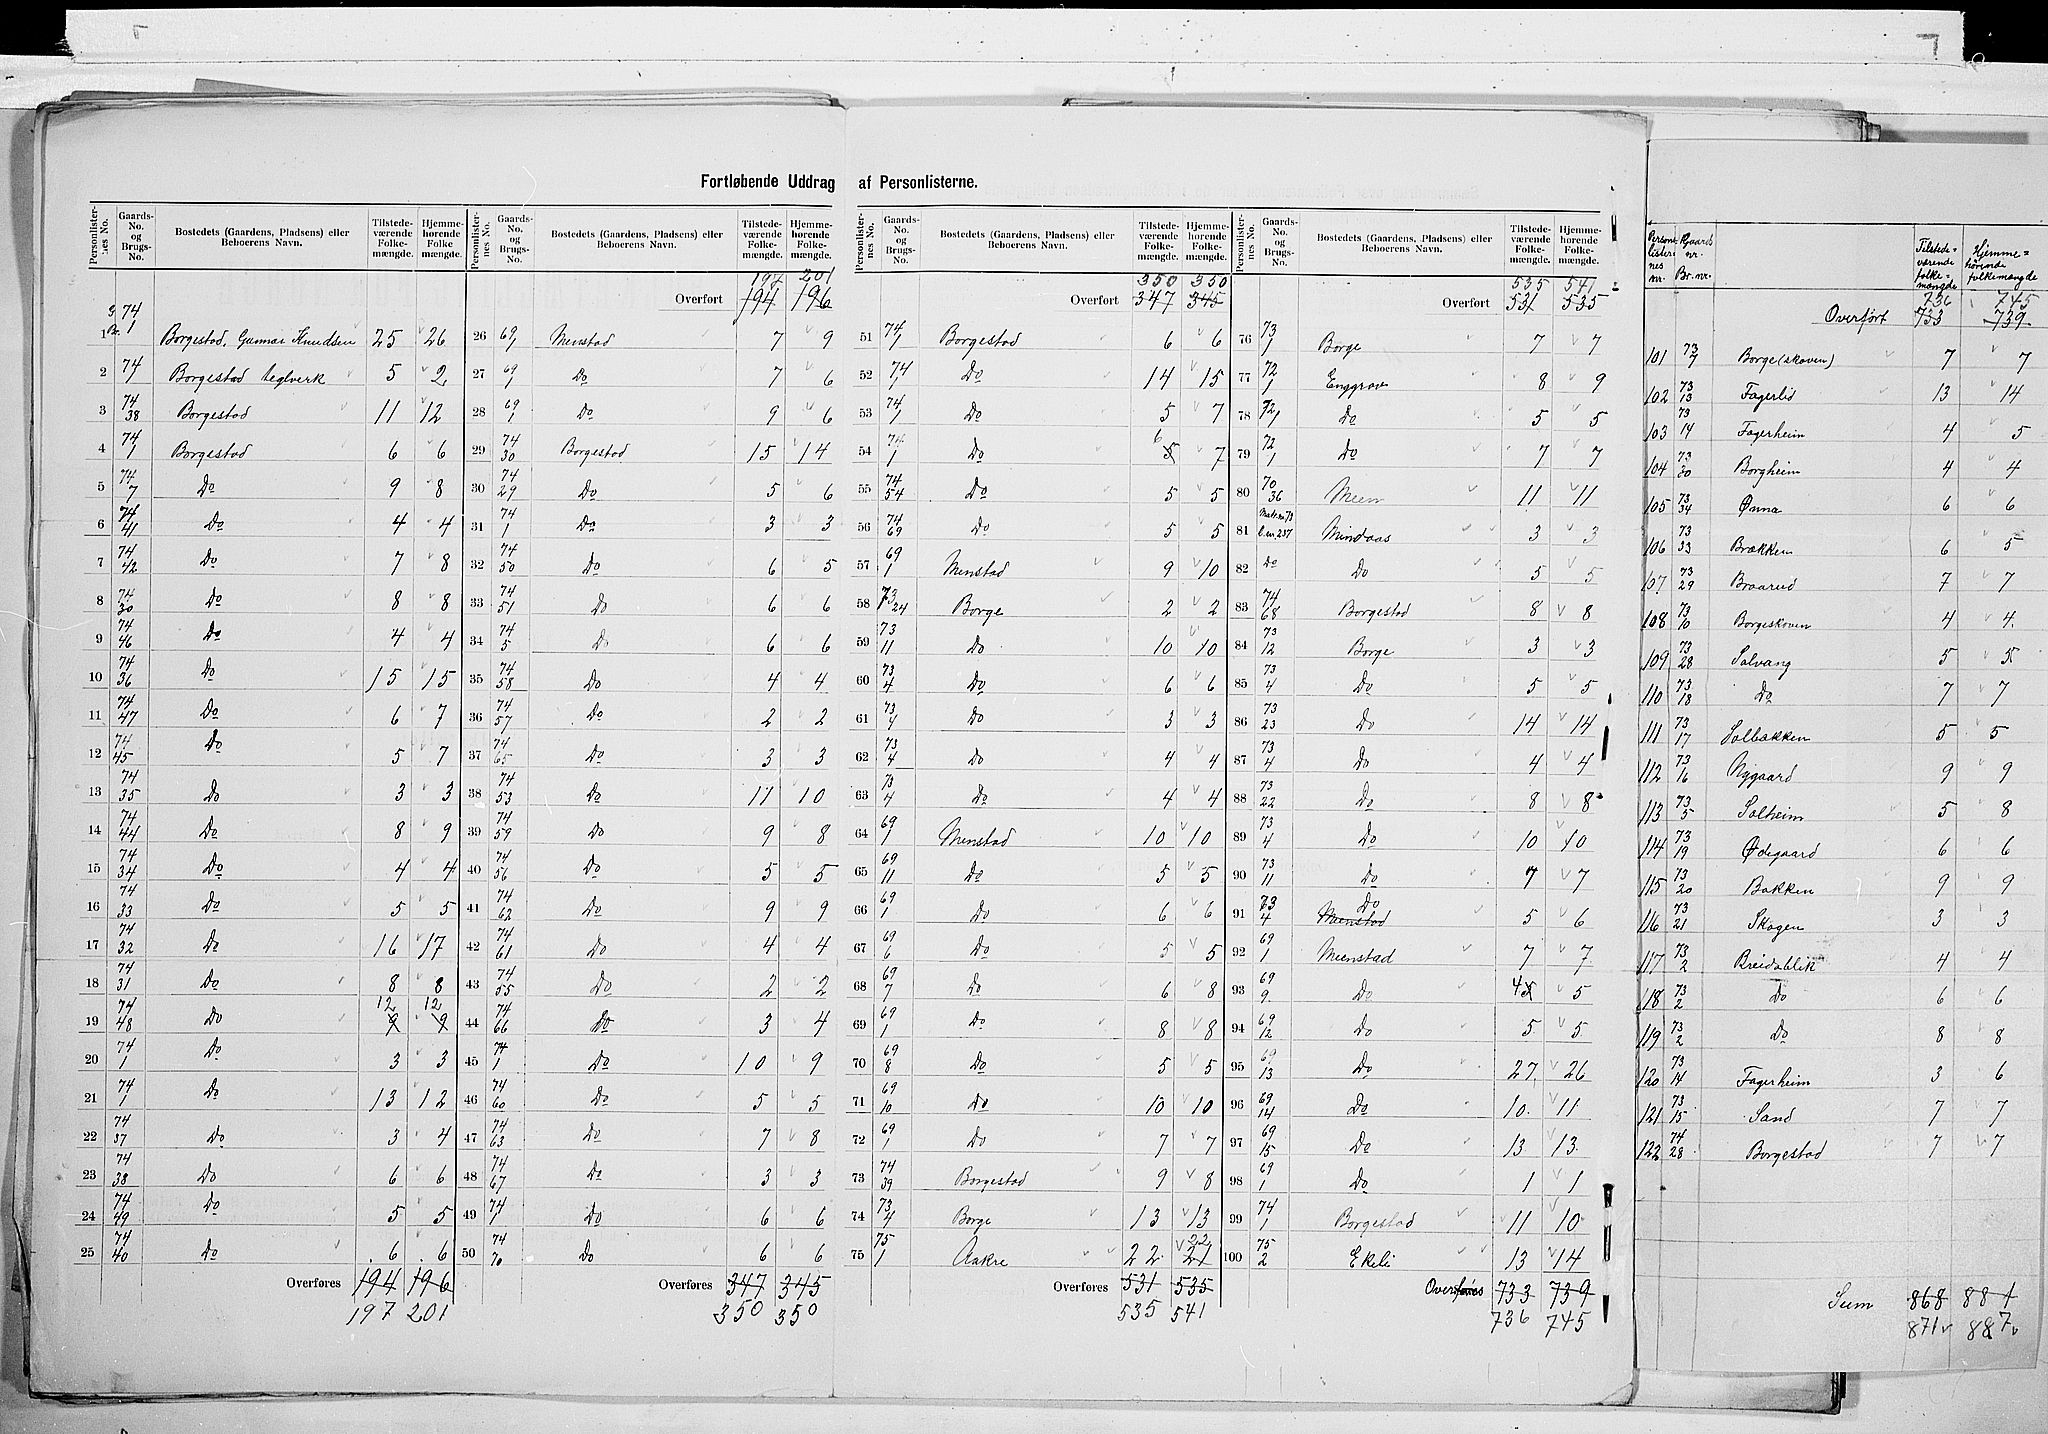 Fortløbende Uddrag af Personlisterne.
Personlister-nes No. Gaards-No. og Brugs-No. Bostedets (Gaardens, Pladsens) eller Beboerens Navn. Tilstede-værende Folke-mængde. Hjemme-hørende Folke-mængde.
1 74/1 Borgestad, Gunnar Knudsen 25 26
2 74 Borgestad teglverk 5 2
3 74/38 Borgestad 11 12
4 74/1 Borgestad 6 6
5 74/7 Do 9 8
6 74/41 Do 4 4
7 74/42 Do 7 8
8 74/30 Do 8 8
9 74/46 Do 4 4
10 74/36 Do 15 15
11 74/47 Do 6 7
12 74/45 Do 5 7
13 74/35 Do 3 3
14 74/44 Do 8 9
15 74/34 Do 4 4
16 74/33 Do 5 5
17 74/32 Do 16 17
18 74/31 Do 8 8
19 74/48 Do 12 9 12 9
20 74/1 Do 3 3
21 74/1 Do 13 12
22 74/37 Do 3 4
23 74/38 Do 6 6
24 74/49 Do 5 5
25 74/40 Do 6 6
Overføres 194 196
197 201
Personlister-nes No. Gaards-No. og Brugs-No. Bostedets (Gaardens, Pladsens) eller Beboerens Navn. Tilstede-værende Folke-mængde. Hjemme-hørende Folke-mængde.
197 201
Overført 194 196
26 69/1 Menstad 7 9
27 69/1 Do 7 6
28 69/1 Do 9 6
29 74/30 Borgestad 15 14
30 74/29 Do 5 6
31 74/1 Do 3 3
32 74/50 Do 6 5
33 74/51 Do 6 6
34 74/5 Do 6 6
35 74/58 Do 4 4
36 74/57 Do 2 2
37 74/65 Do 3 3
38 74/53 Do 11 10
39 74/59 Do 9 8
40 74/56 Do 5 5
41 74/62 Do 9 9
42 74/61 Do 4 4
43 74/55 Do 2 2
44 74/66 Do 3 4
45 74/1 Do 10 9
46 74/60 Do 5 5
47 74/63 Do 7 8
48 74/67 Do 3 3
49 74/1 Do 6 6
50 74/70 Do 6 6
Overføres 347 345
350 350
Personlister-nes No. Gaards-No. og Brugs-No. Bostedets (Gaardens, Pladsens) eller Beboerens Navn. Tilstede-værende Folke-mængde. Hjemme-hørende Folke-mængde.
350 350
Overført 347 345
51 74/1 Borgestad 6 6
52 74/1 Do 14 15
53 74/1 Do 5 7
54 74/1 Do 6 5 7
55 74/54 Do 5 5
56 74/69 Do 5 5
57 69/1 Menstad 9 10
58 73/24 Borge 2 2
59 73/11 Do 10 10
60 73/4 Do 6 6
61 73/4 Do 3 3
62 73/4 Do 4 4
63 73/4 Do 4 4
64 69/1 Menstad 10 10
65 69/11 Do 5 5
66 69/1 Do 6 6
67 69/6 Do 5 5
68 69/7 Do 6 8
69 69/1 Do 8 8
70 69/8 Do 5 5
71 69/10 Do 10 10
72 69/1 Do 7 7
73 74/39 Borgestad 9 8
74 73/4 Borge 13 13
75 75/1 Aakre 22 22 21
Overføres 531 535
535 541
Personlister-nes No. Gaards-No. og Brugs-No. Bostedets (Gaardens, Pladsens) eller Beboerens Navn. Tilstede-værende Folke-mængde. Hjemme-hørende Folke-mængde.
535 541
Overført 531 535
76 73/1 Borge 7 7
77 72/1 Enggrav 8 9
78 72/1 Do 5 5
79 72/1 Do 7 7
80 70/36 Meen 11 11
81 Matr.no 73 l.n. 237 Mindaas 3 3
82 Do Do 5 5
83 74/68 Borgestad 8 8
84 73/12 Borge 3 3
85 73/4 Do 5 5
86 73/23 Do 14 14
87 73/4 Do 4 4
88 73/22 Do 8 8
89 73/4 Do 10 10
90 73/11 Do 7 7
91 73/4 Do Menstad 5 6
92 69/1 Menstad 7 7
93 69/9 Do 4 5 5
94 69/12 Do 5 5
95 69/13 Do 27 26
96 69/14 Do 10 11
97 69/15 Do 13 13
98 69/1 Do 1 1
99 74/1 Borgestad 11 10
100 75/2 Ekeli 13 14
Overføres 733 739
736 745
Person listernes nr. Gaards nr. Br. nr. Tilstedeværende folkemængde Hjemmehörende folkemængde
736 745
Overført 733 739
101 73/7 Borge (skoven) 7 7
102 73/13 Fagerlid 13 14
103 73/14 Fagerheim 4 5
104 73/30 Borgheim 4 4
105 73/34 Ørna 6 6
106 73/33 Brækken 6 5
107 73/29 Braarud 7 7
108 73/10 Borgeskoven 4 4
109 73/28 Solvang 5 5
110 73/18 Do 7 7
111 73/17 Solbakken 5 5
112 73/16 Nygaard 9 9
113 73/5 Solheim 5 8
114 73/19 Ødegaard 6 6
115 73/20 Bakken 9 9
116 73/21 Skogen 3 3
117 73/2 Breidablik 4 4
118 73/2 Do 6 6
119 73/2 Do 8 8
120 73/14 Fagerheim 3 6
121 73/15 Sand 7 7
122 74/28 Borgestad 7 7
Sum 868 881
871 887